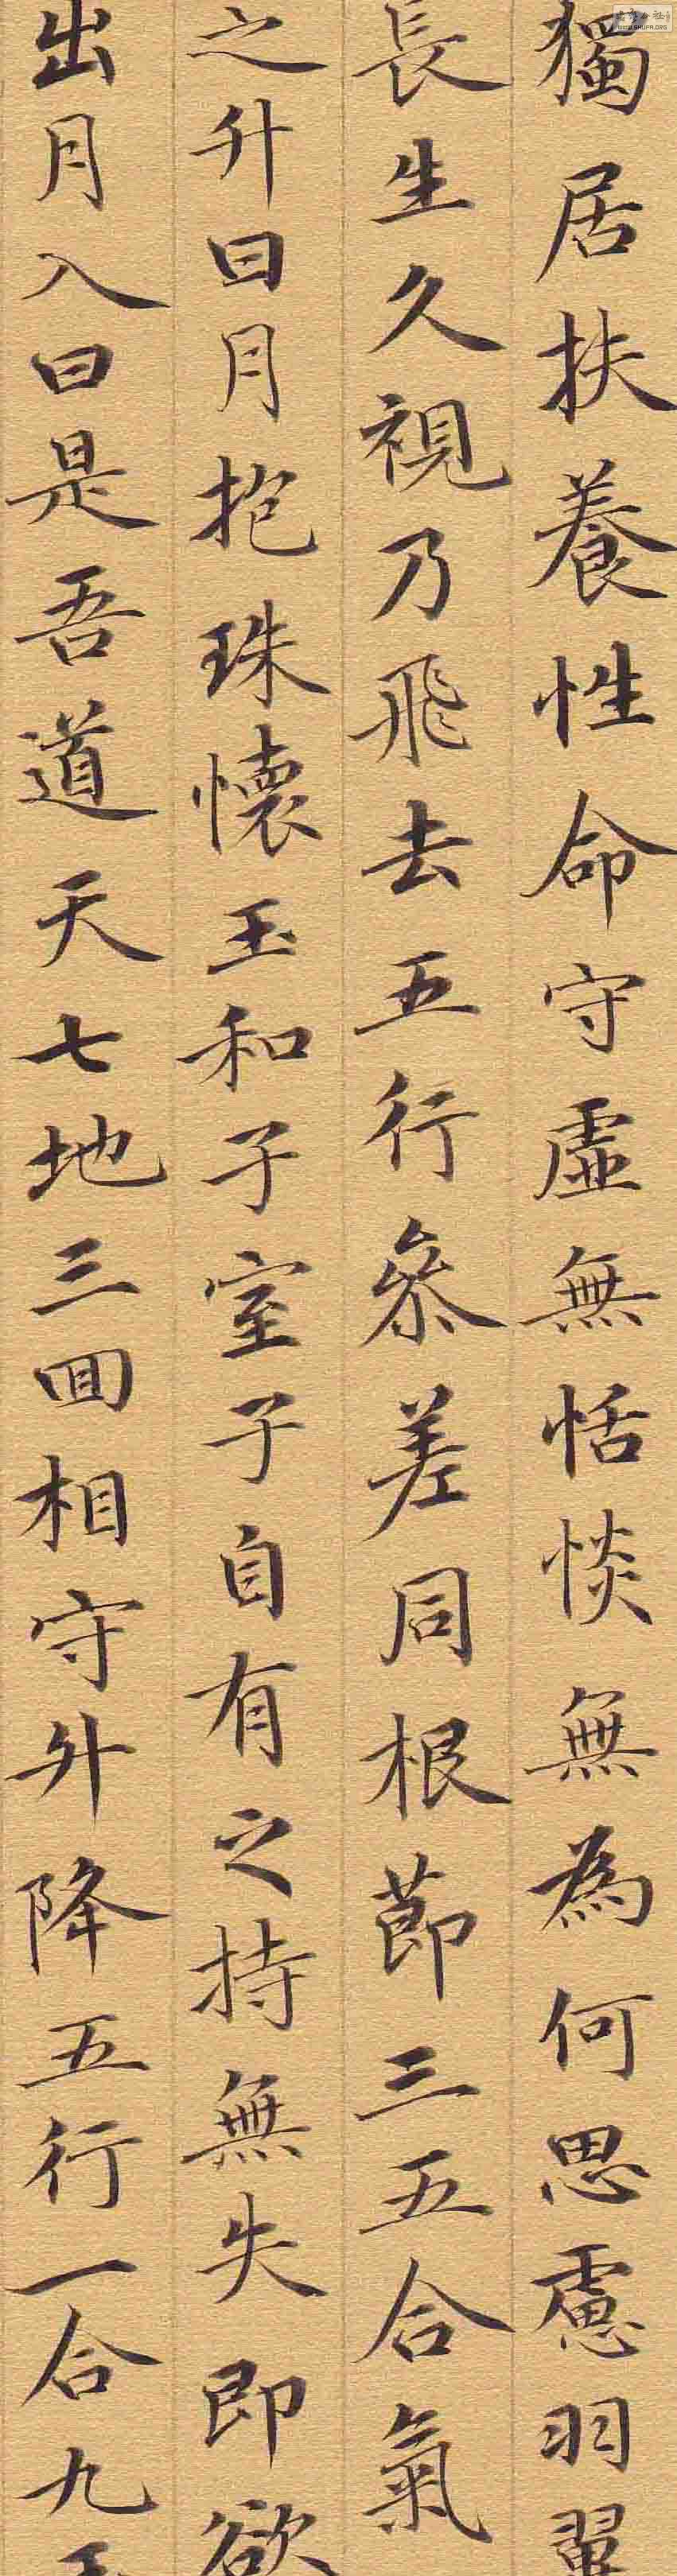 獨居扶養性命守虛無恬惔無為何思慮羽翼
長生久視乃飛去五行參差同根節三五合氣
之升曰月抱珠懷玉和子室子自有之持無失即欲
出月入曰是吾道天七地三回相守升降五行一合九玉